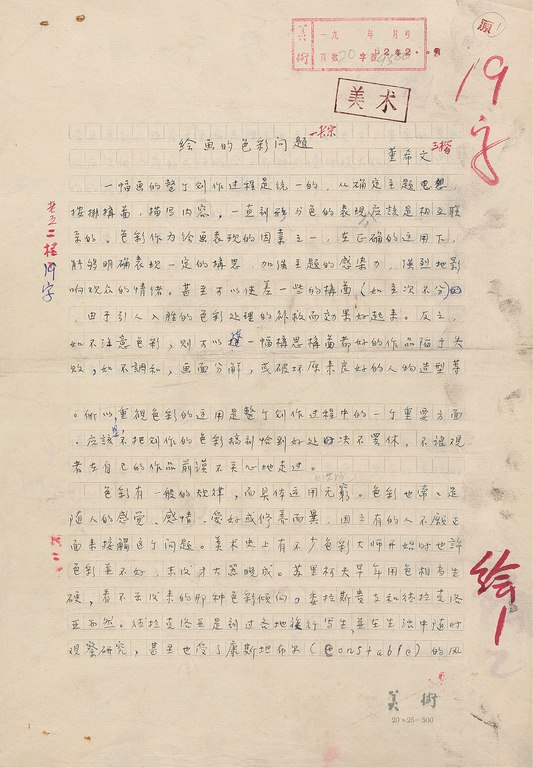 原
美術 一九 年 月号
頁数20 字数
美术
19字
绘画的色彩问题
董希文
一幅画的整个创作过程是统一的，从确定主题思想，
按排構畐，描写内容，一直到形与色的表现应該是相互联
系的。色彩作为绘画表现的因素之一，在正确的运用下，
能够明确表现一定的構思，加强主题的感染力，强烈地影
响观众的情绪。甚至可以使差一些的構畐（如主次不分）
，由于引人入胜的色彩处理的补救而効果好起来。反之，
如不注意色彩，则可以 一幅構思構畐都好的作品陷于失
败，如不調和，画面分解，或破坏原来良好的人物造型等
。所以，重视色彩的运用是整个创作过程中的一个重要方面
，应該是不把创作的色彩搞到恰到好处 决不罢休，不讓观
者在自己的作品前漠不关心地走过。
色彩有一般的规律，而具体运用无窮。色彩也常常是
随人的感觉、感情、爱好或修养而異，因之有的人不願正
面来接触这个问题。美术史上有不少色彩大师开始时也許
色彩並不好，末后才大器晚成。苏里柯夫早年用色相当生
硬，看不出后来的那种色彩倾向。委拉斯贵支和德拉克洛
亚亦然。德拉克洛亚是到过各地旅行写生，並在生活中随时
观察研究，甚至也受了康斯坦布尔（Constable）的风
绘1
美術
20×25=500